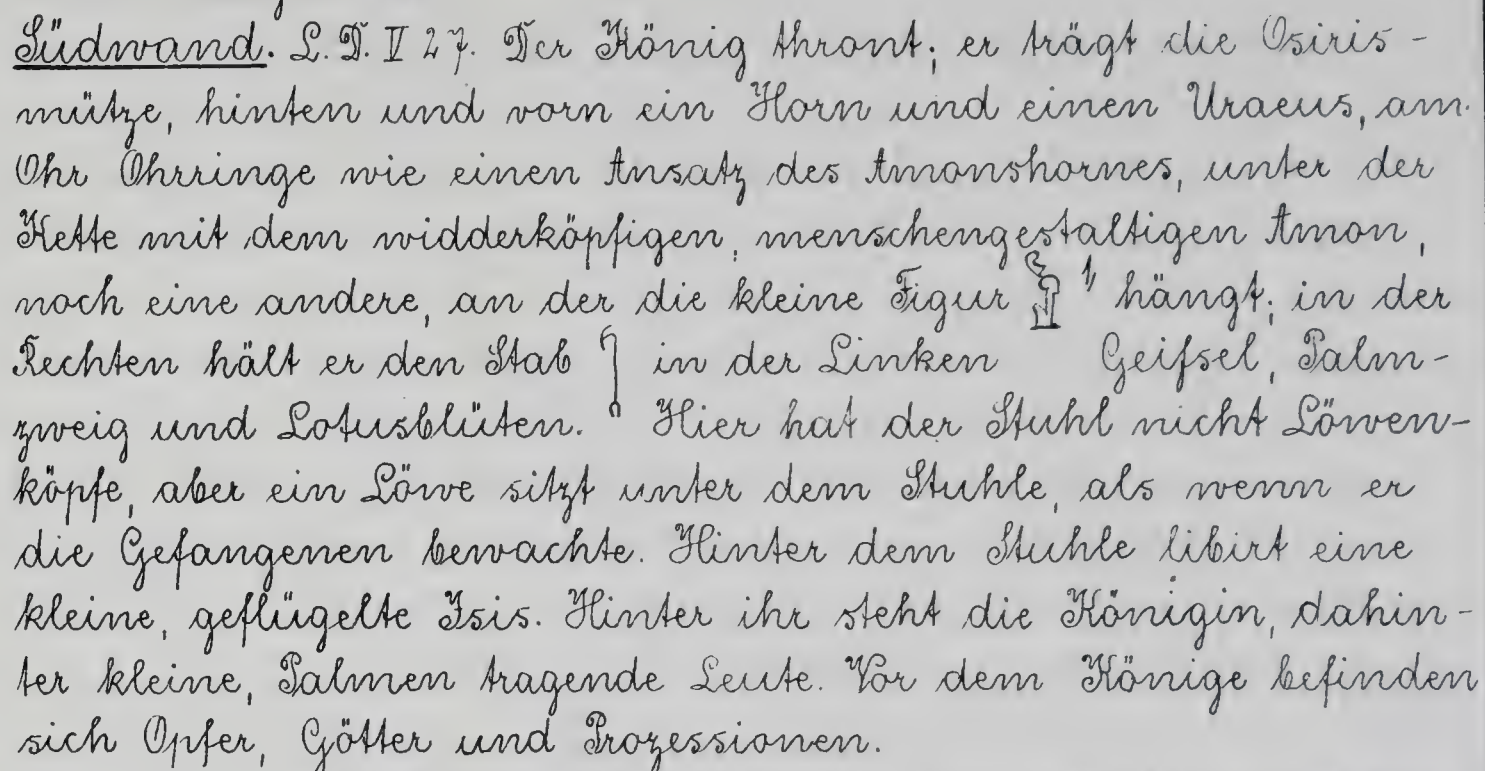 Südwand. L. D. V 27. Der König thront; er trägt die Osiris-
mütze, hinten und vorn ein Horn und einen Uraeus, am
Ohr Ohrringe wie einen Ansatz des Amonshornes, unter der
Kette mit dem widderköpfigen, menschengestaltigen Amon,
noch eine andere, an der die kleine Figur 1) hängt; in der
Rechten hält er den Stab in der Linken Geifsel, Palm-
zweig und Lotusblüten. Hier hat der Stuhl nicht Löwen-
köpfe, aber ein Löwe sitzt unter dem Stuhle, als wenn er
die Gefangenen bewachte. Hinter dem Stuhle libirt eine
kleine, geflügelte Isis. Hinter ihr steht die Königin, dahin-
ter kleine, Palmen tragende Leute. Vor dem Könige befinden
sich Opfer, Götter und Prozessionen.